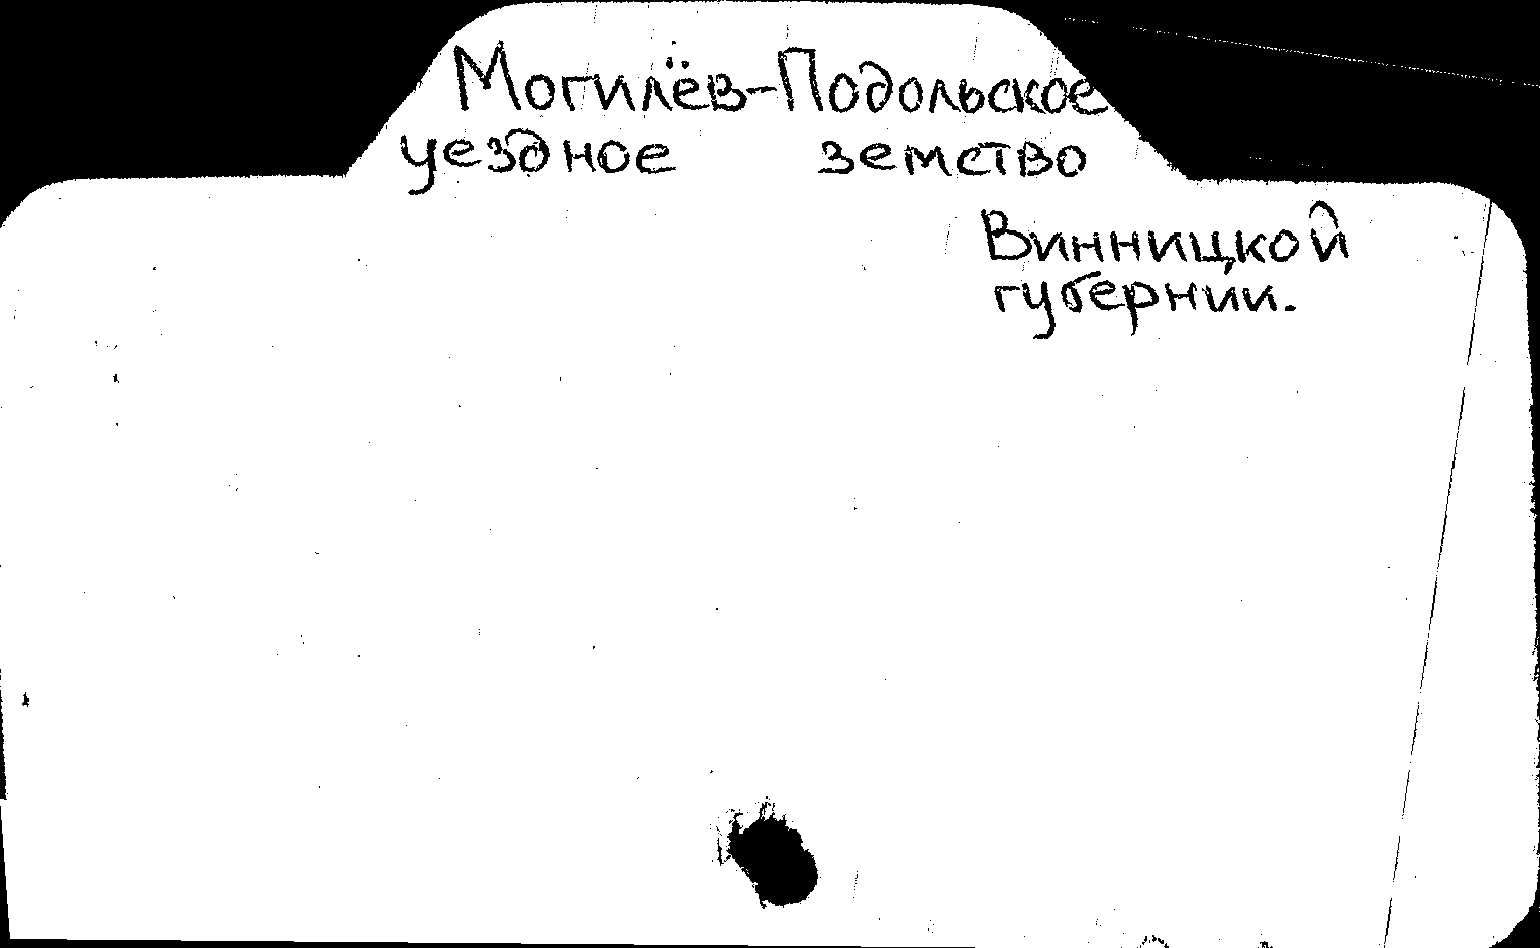 Могилёв-Подольское
уездное земство
Винницкой
губернии.